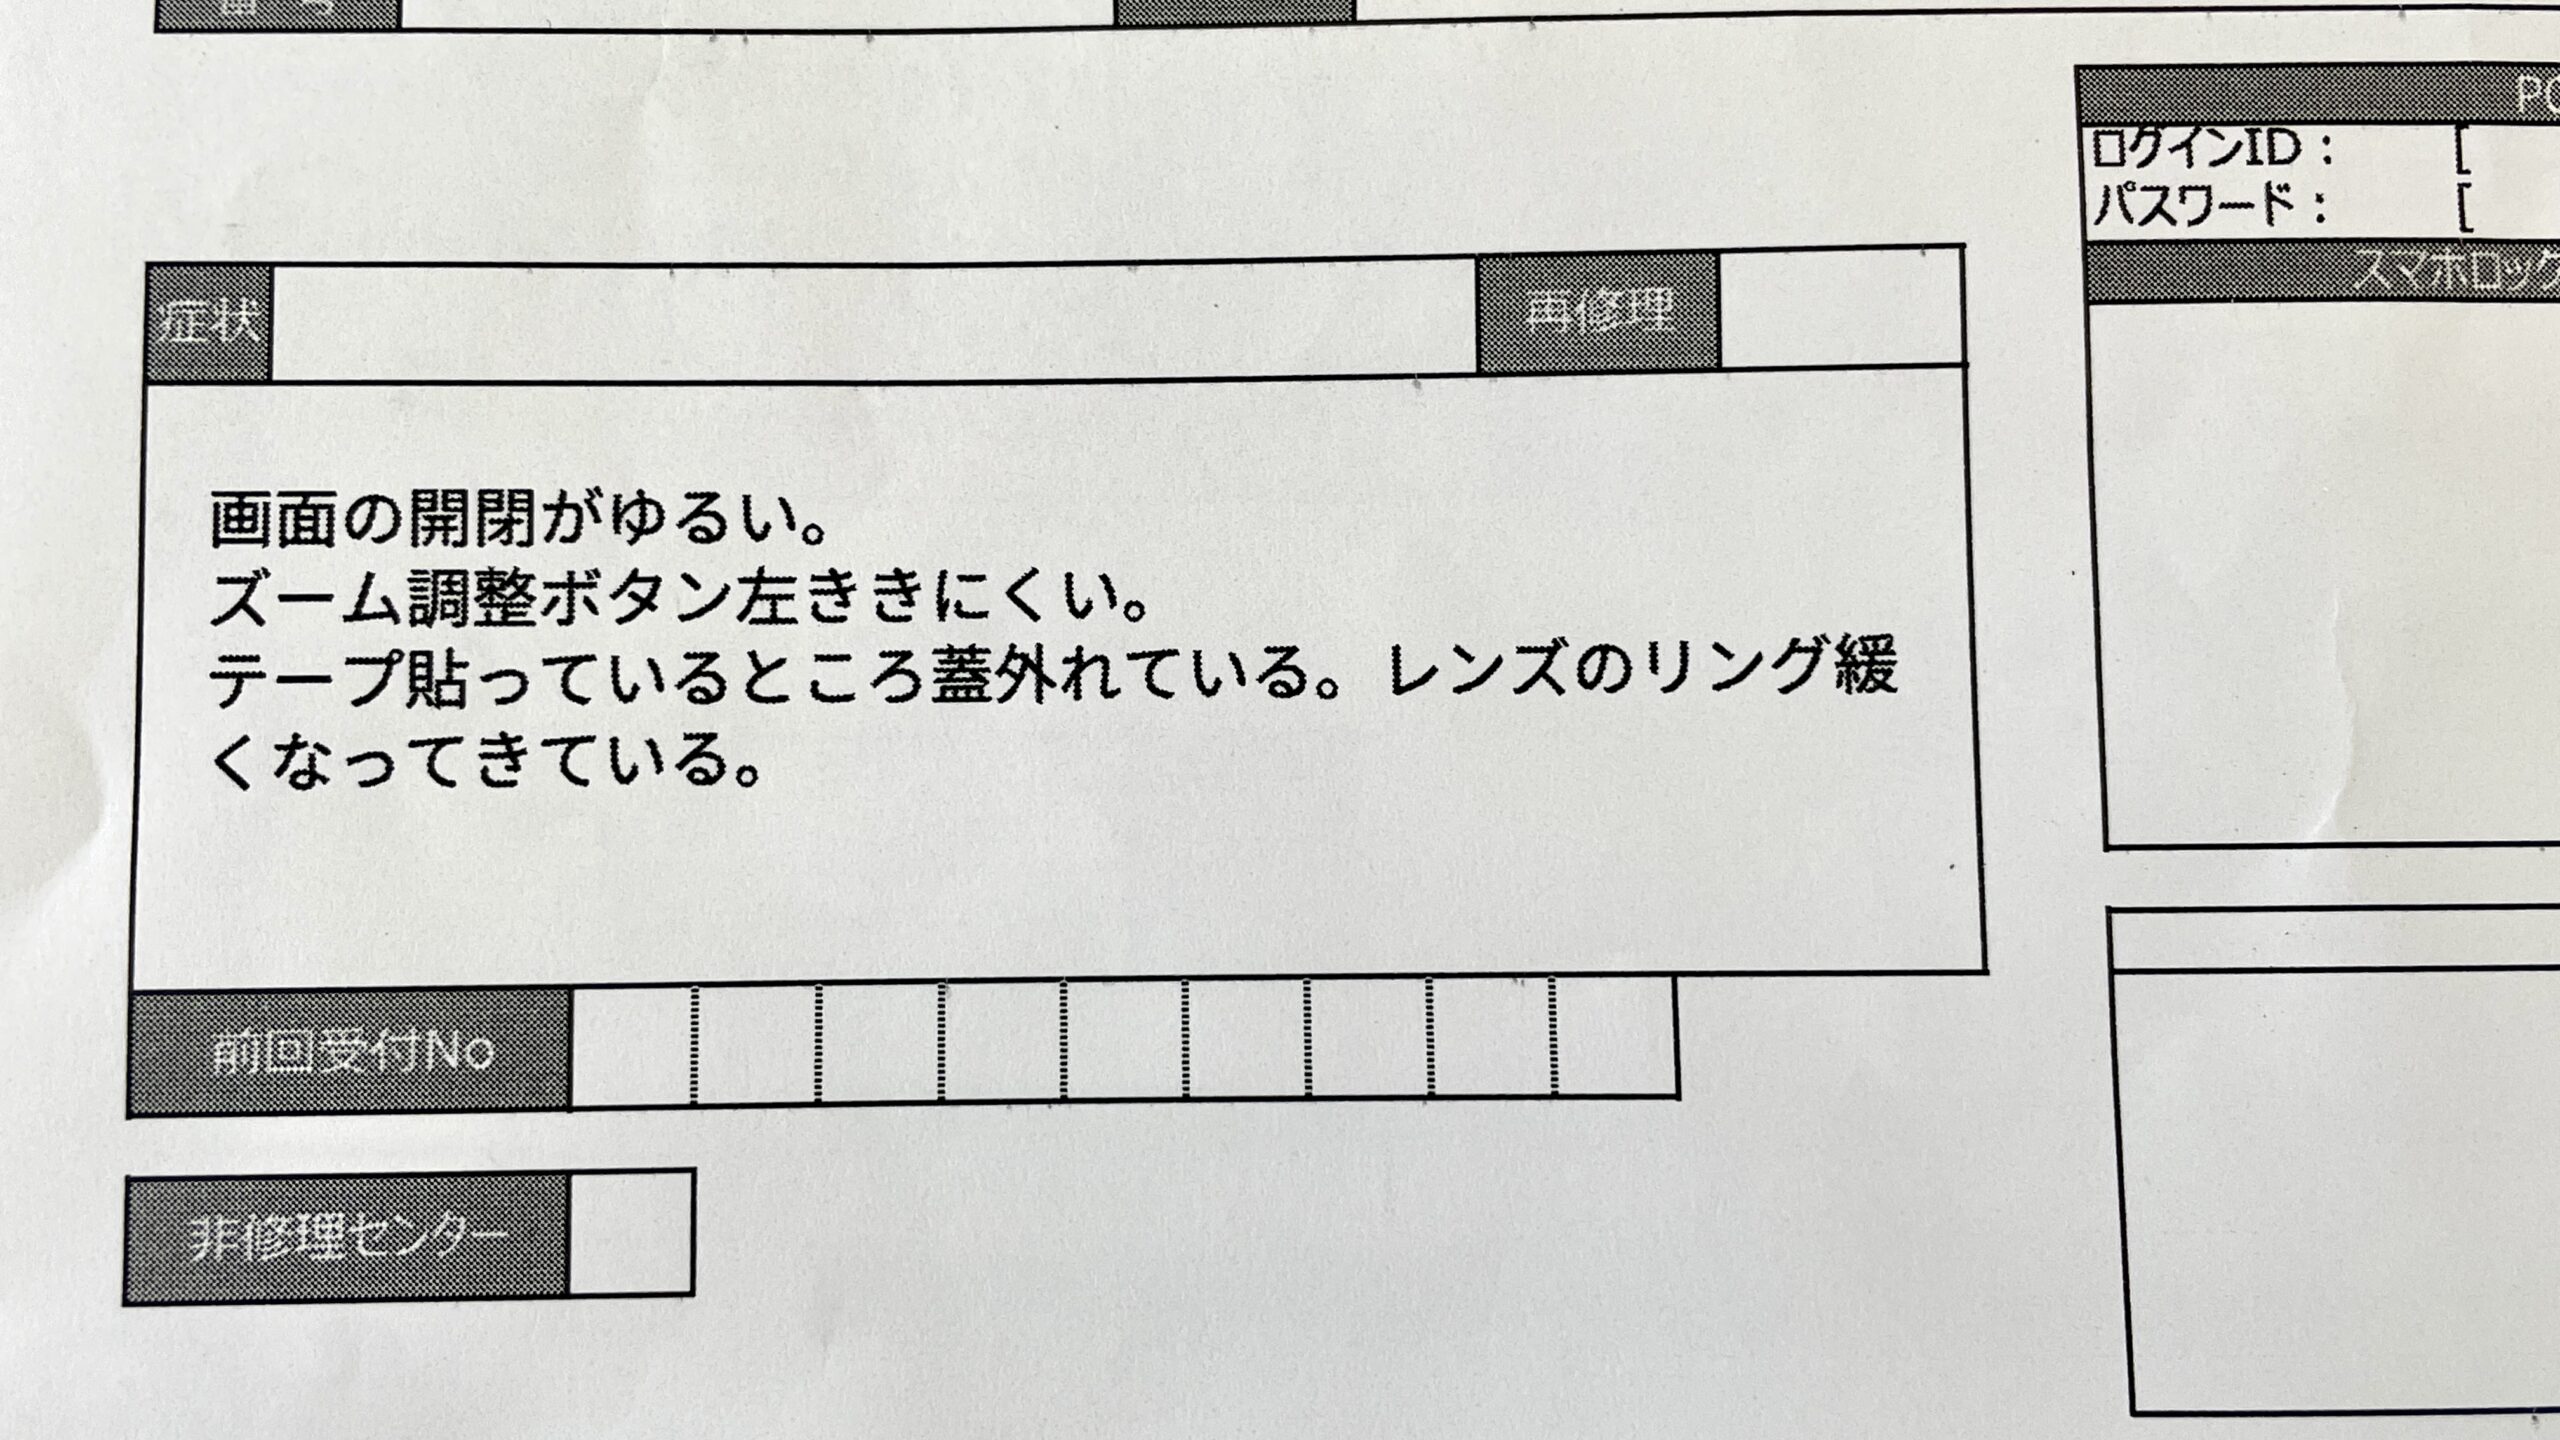 番号
PC
ログインID： [
パスワード： [
スマホロック
症状
再修理
画面の開閉がゆるい。
ズーム調整ボタン左ききにくい。
テープ貼っているところ蓋外れている。レンズのリング緩
くなってきている。
前回受付No
非修理センター